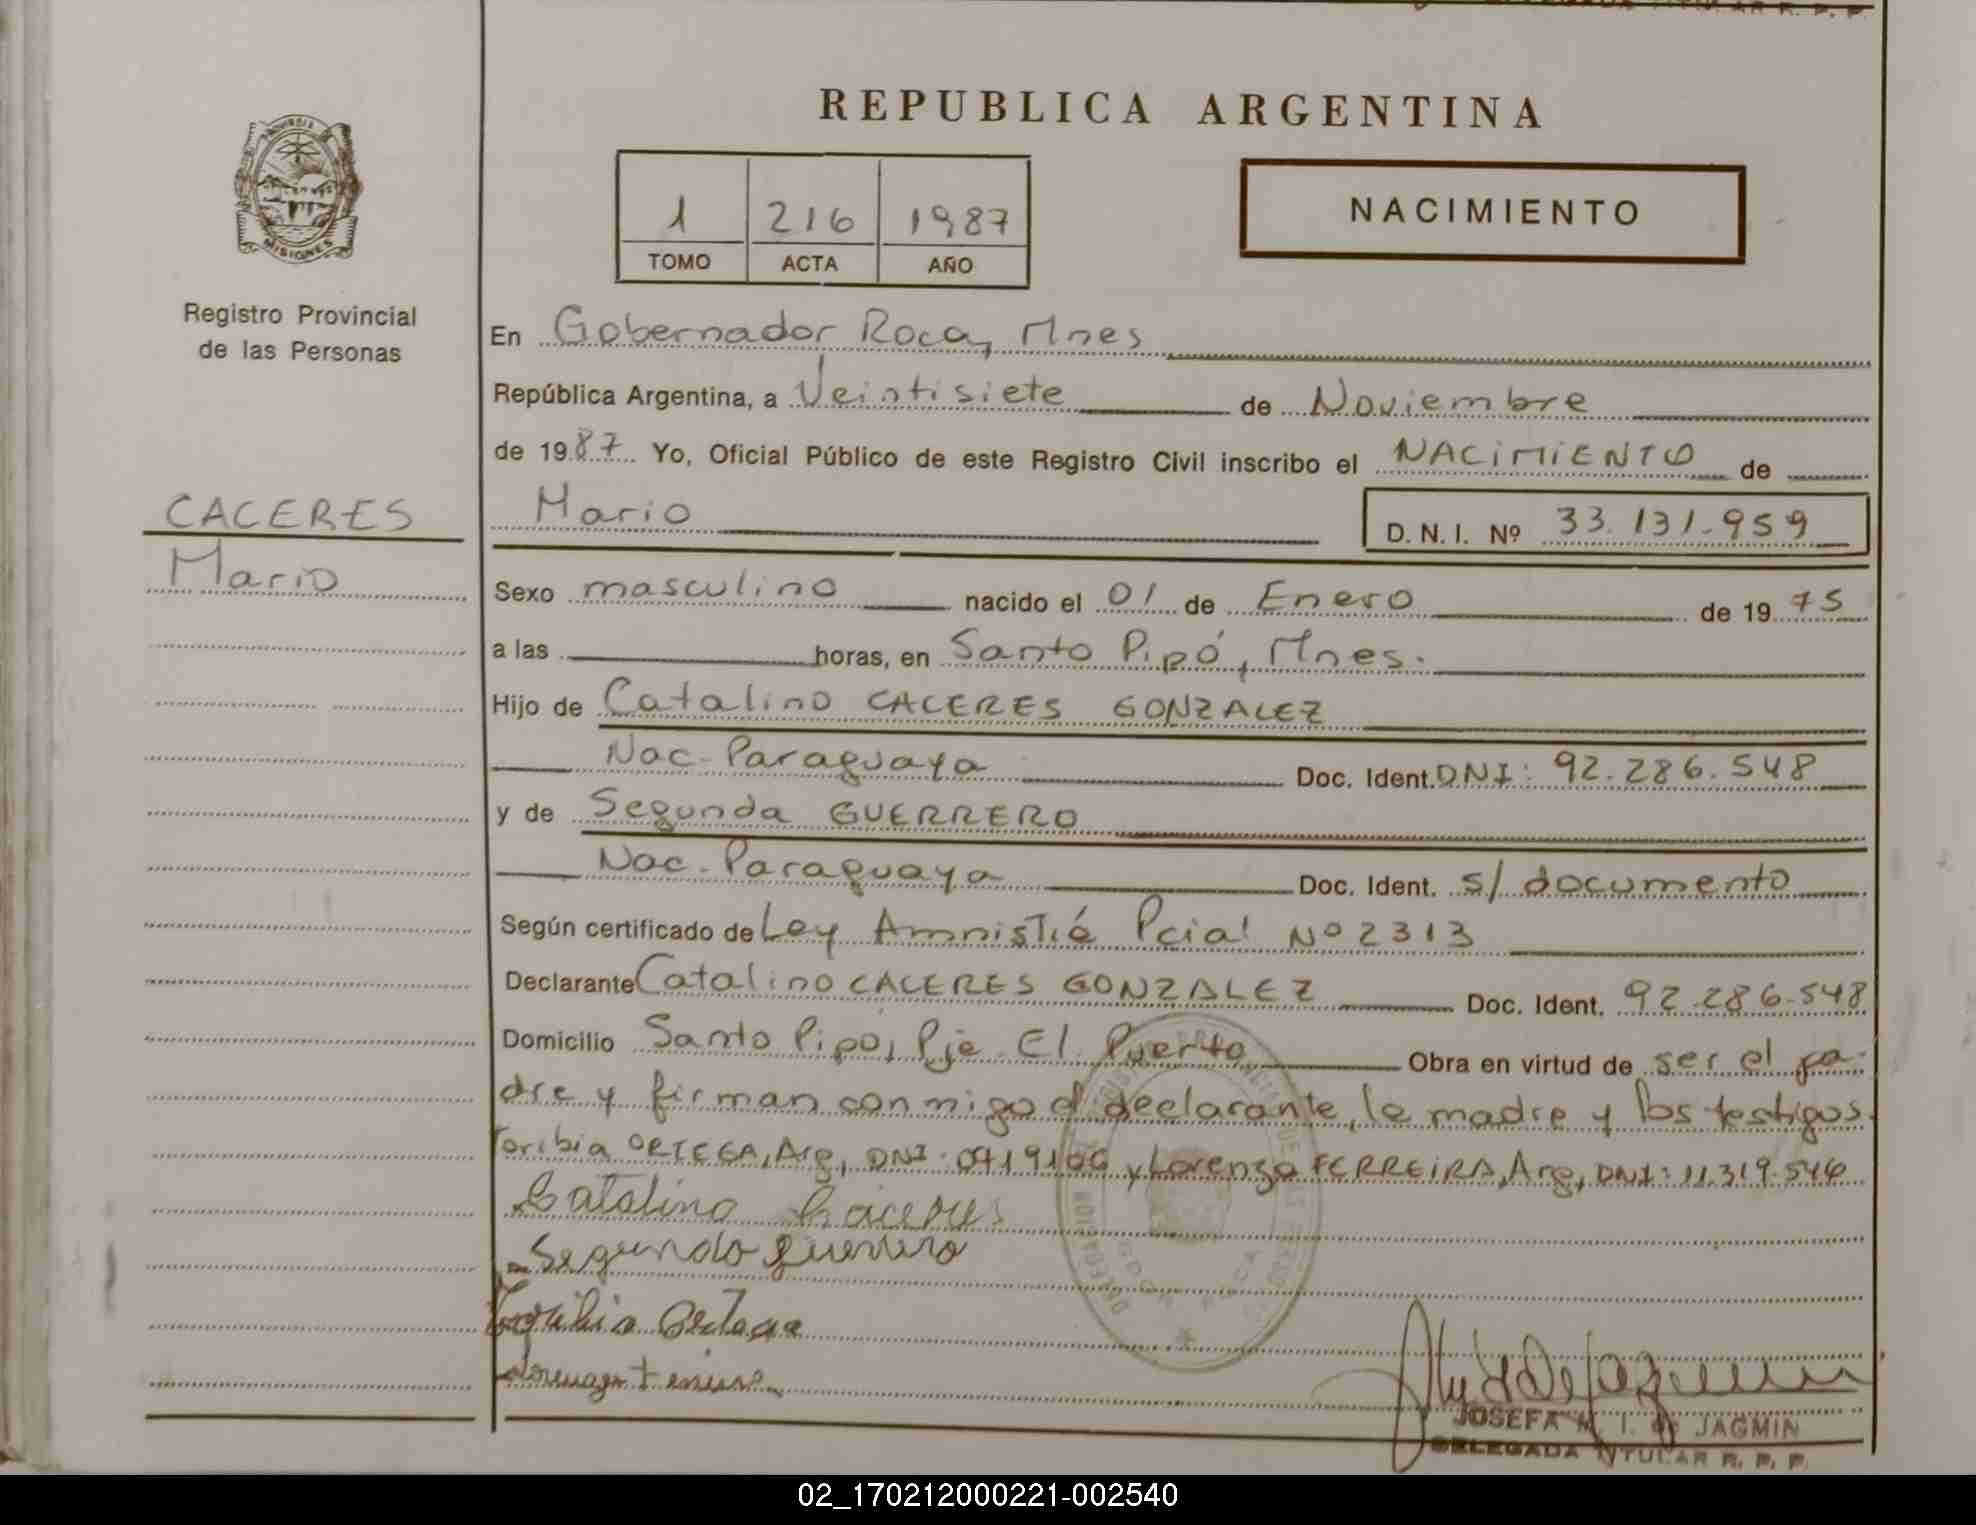 REPUBLICA ARGENTINA
PROVINCIA
MISIONES
Registro Provincial
de las Personas
1 216 1987
TOMO ACTA AÑO
NACIMIENTO
En Gobernador Roca, Mnes
República Argentina, a Veintisiete de Noviembre
de 1987 Yo, Oficial Público de este Registro Civil inscribo el NACIMIENTO de
CACERES
Mario
Mario D. N. I. Nº 33.131.959
Sexo masculino nacido el 01 de Enero de 1975
a las horas, en Santo Pipó, Mnes.
Hijo de Catalino CACERES GONZALEZ
Nac. Paraguaya Doc. Ident. DNI: 92.286.548
y de Segunda GUERRERO
Nac. Paraguaya Doc. Ident. s/ documento
Según certificado de Ley Amnistía Pcial Nº 2313
Declarante Catalino CACERES GONZALEZ Doc. Ident. 92.286.548
Domicilio Santo Pipó, Pje El Puerto Obra en virtud de ser el pa-
dre y firman conmigo el declarante, la madre y los testigos
Toribia ORTEGA, Arg, DNI: y Lorenzo FERREIRA, Arg, DNI: 11.319.546
Catalino Caceres
Segunda Guerrero
Toribia Ortega
JOSEFA M. I. de JAGMIN
DELEGADA TITULAR R. P. P.
02_170212000221-002540